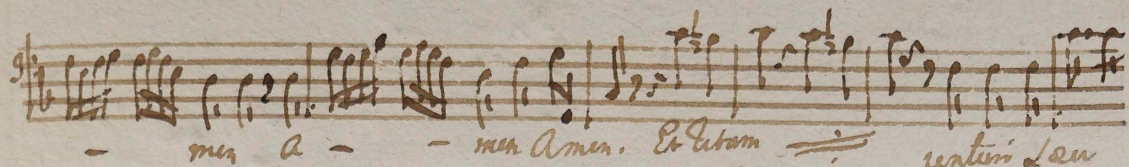 - men A - - men Amen. Et Vitam venturi Sæcu